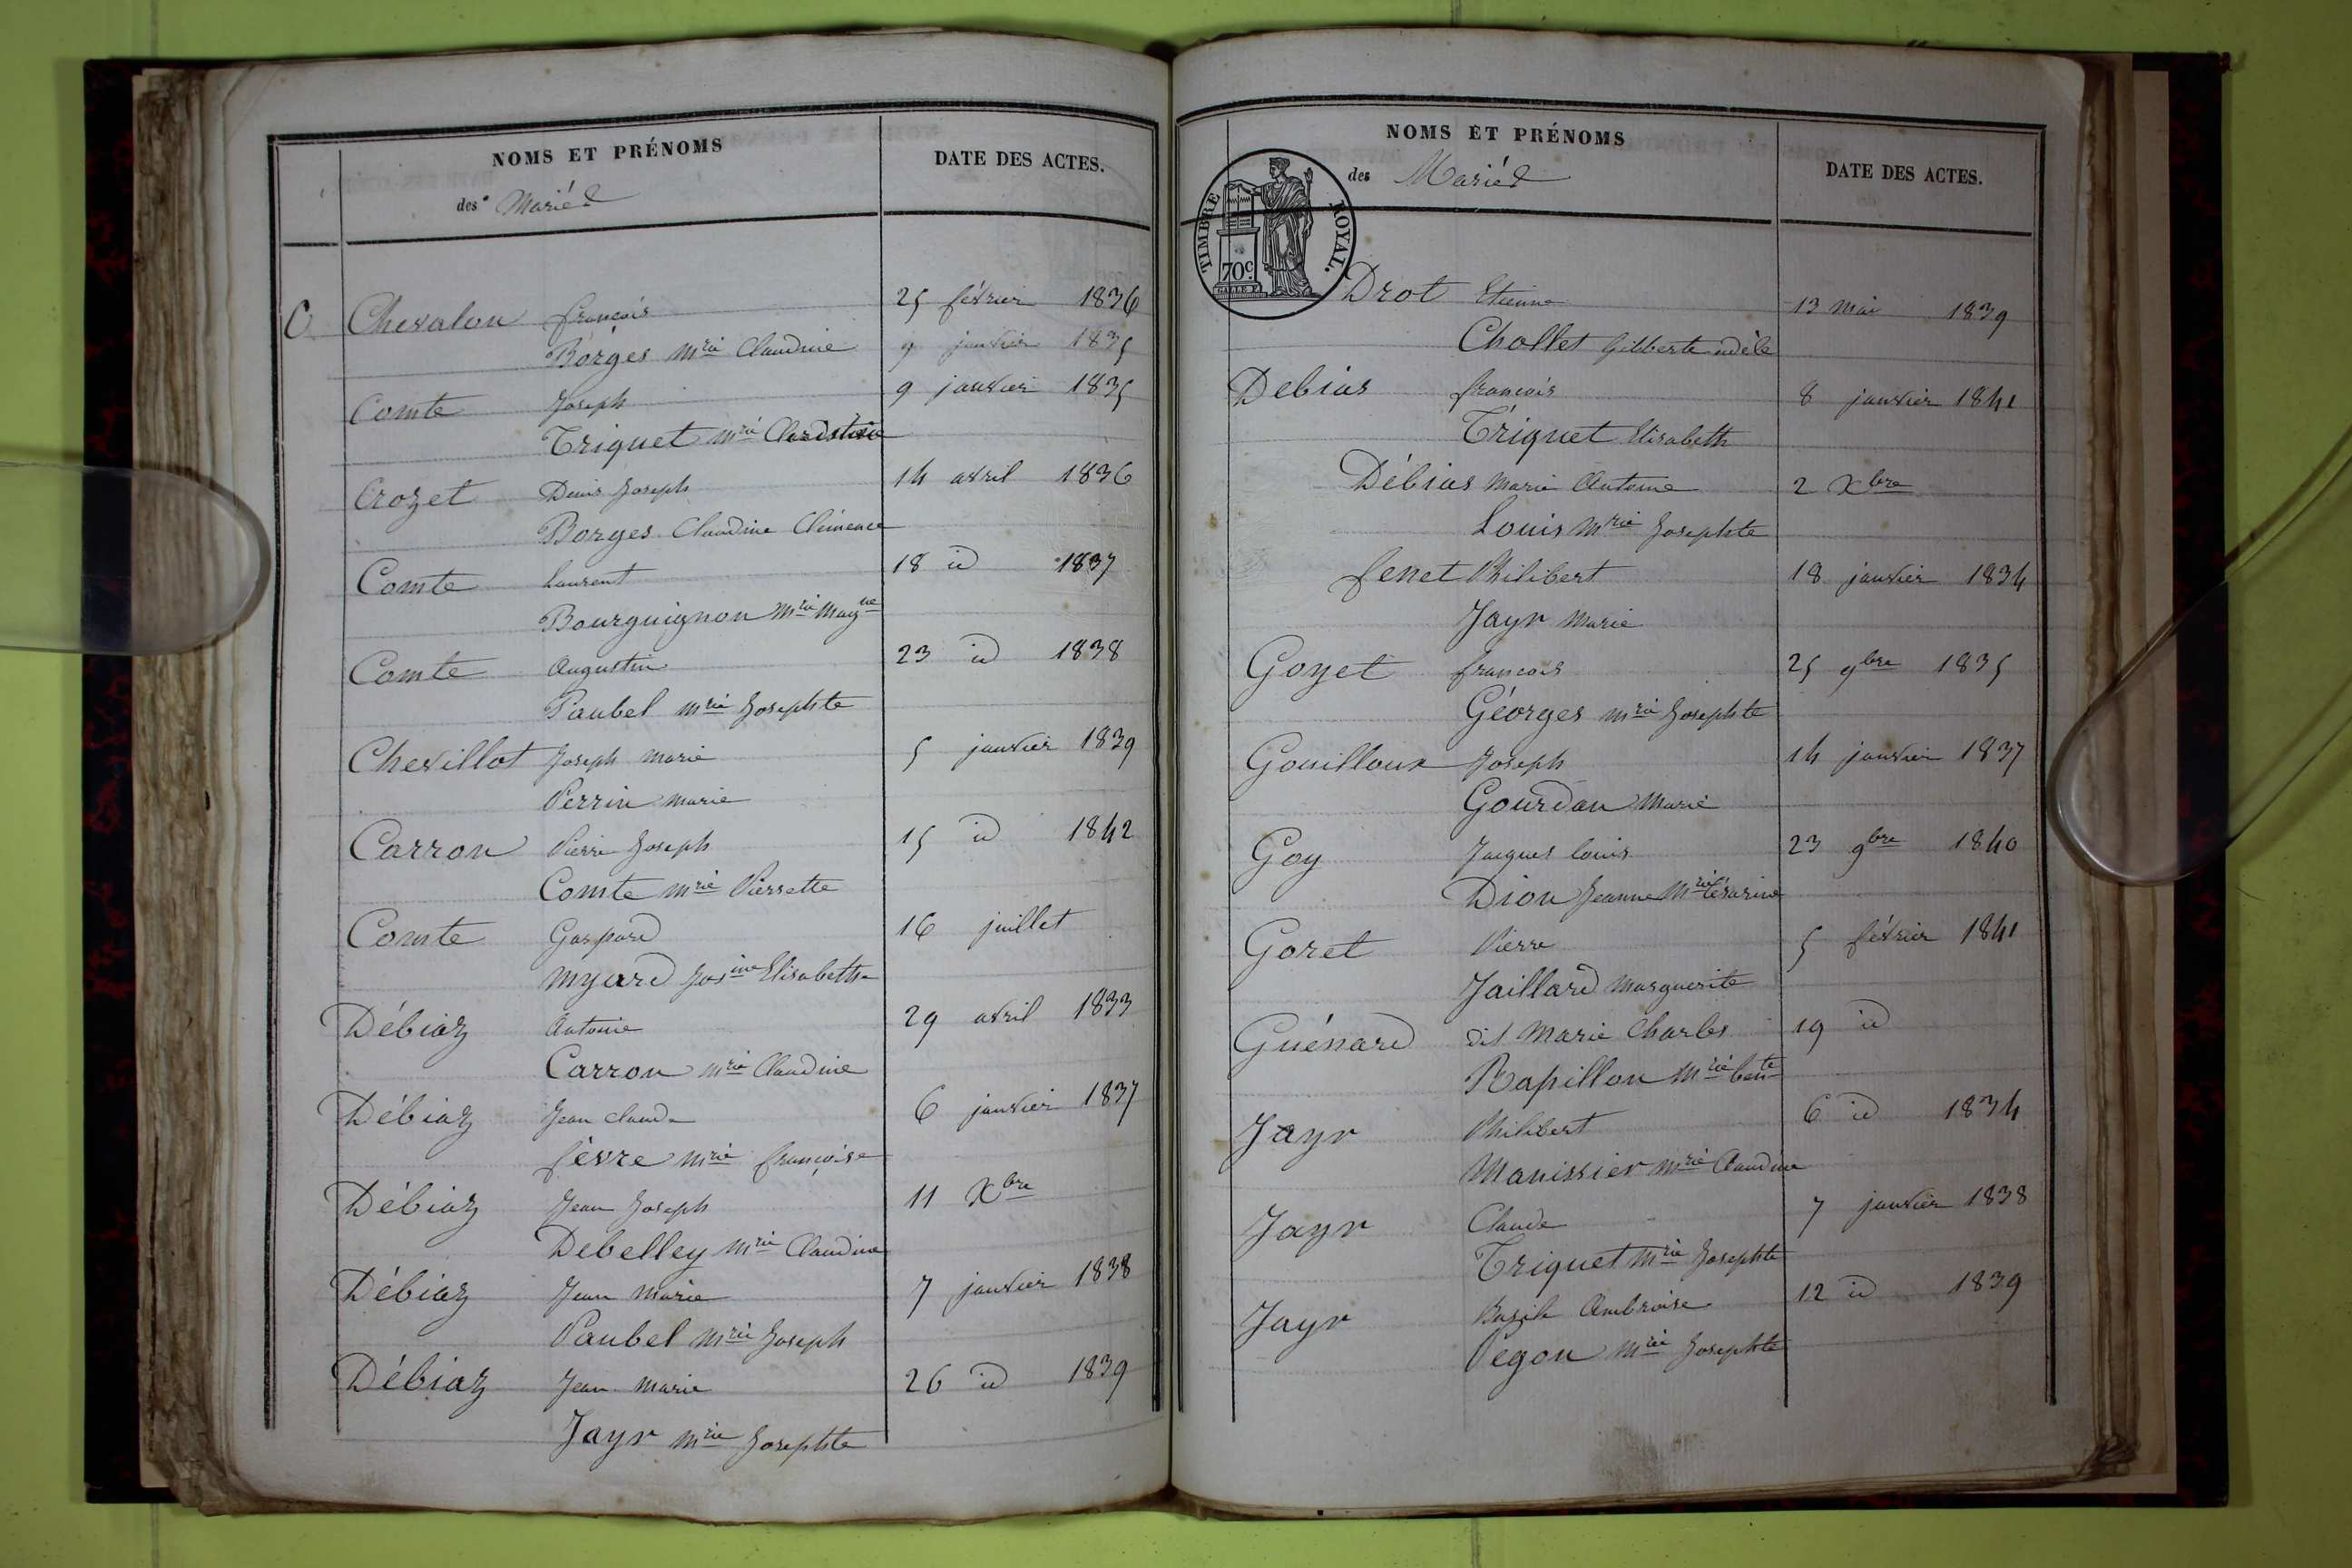 NOMS ET PRÉNOMS
des Mariés
DATE DES ACTES.
C Chevalon françois 25 février 1836
Borges mrie Claudine 9 janvier 1835
Comte Joseph 9 janvier 1835
Triquet mrie
Crozet Denis Joseph 14 avril 1836
Borges Claudine Clémence
Comte Laurent 18 id 1837
Bourguignon mrie
Comte Augustin 23 id 1838
Paubel mrie Josephte
Chevillot Joseph marie 5 janvier 1839
Perrin marie
Carron Pierre Joseph 15 id 1842
Comte mrie Pierrette
Comte Gaspard 16 juillet
Myard Josine Elisabeth
Débiaz Antoine 29 avril 1833
Carron mrie Claudine
Débiaz Jean Claude 6 janvier 1837
fèvre mrie françoise
Débiaz Jean Joseph 11 Xbre
Debelley mrie Claudine
Débiaz Jean Marie 7 janvier 1838
Paubel mrie Joseph
Débiaz Jean marie 26 id 1839
Jayr mrie Josephte
NOMS ET PRÉNOMS
des Mariés
DATE DES ACTES.
TIMBRE ROYAL.
70c
Drot Etienne 13 mai 1839
Chollet Gilberte adèle
Debias françois 8 janvier 1841
Triquet Elisabeth
Débias Marie Antoine 2 Xbre
Louis mrie Josephte
fenet Philibert 18 janvier 1834
Jayr Marie
Goyet françois 25 9bre 1835
Géorges mrie Josephte
Gouilloux Joseph 14 janvier 1837
Gourdan Marie
Goy Jacques louis 23 9bre 1840
Dion Jeanne Mrie Césarine
Goret Pierre 5 février 1841
Jaillard Marguerite
Guénard dit Marie Charles 19 id
Rapillon Mrie
Jayr Philibert 6 id 1834
Manissier mrie Claudine
Jayr Claude 7 janvier 1838
Triquet mrie Josephte
Jayr Bazile Ambroise 12 id 1839
Pegon mrie Josephte